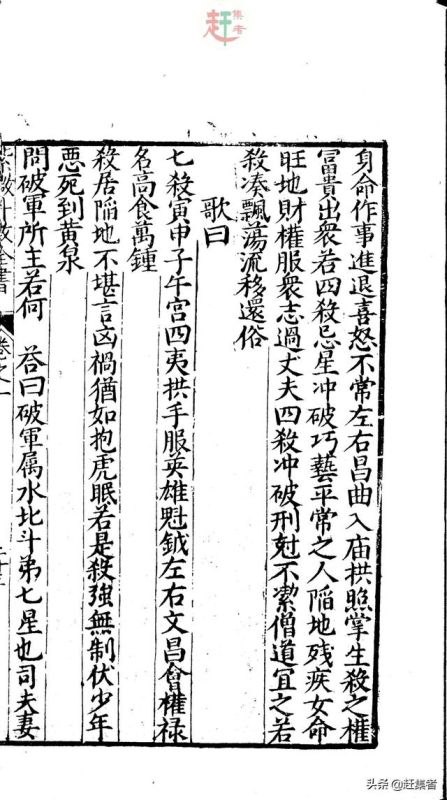 赶集者
身命作事進退喜怒不常左右昌曲入庙拱照掌生殺之權
冨貴出衆若四殺忌星冲破巧藝平常之人陷地残疾女命
旺地財權服衆志過丈夫四殺冲破刑尅不潔僧道宜之若
殺凑飄蕩流移還俗
歌曰
七殺寅申子午宫四夷拱手服英雄魁鉞左右文昌會權禄
名高食萬鍾
殺居陷地不堪言凶禍猶如抱虎眠若是殺強無制伏少年
悪死到黄泉
問破軍所主若何 荅曰破軍属水北斗弟七星也司夫妻
卷之一
头条@赶集者